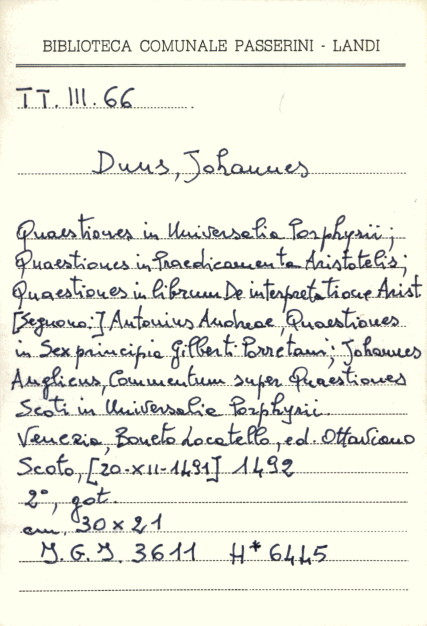 BIBLIOTECA COMUNALE PASSERINI - LANDI
TT. III. 66
Duns, Johannes
Quaestiones in Universalia Porphysii;
Quaestiones in Praedicamenta Aristotelis;
Quaestiones in librum De interpretatione Arist
[Seguono:] Antonius Andreae, Quaestiones
in Sex principia Gilberti Porretani; Johannes
Anglicus, Commentum super Quaestiones
Scoti in Universalia Porphysii.
Venezia, Boneto Locatello, ed. Ottaviano
Scoto, [20-XII-1491] 1492
2°, got.
cm. 30 x 21
I.G.I. 3611 H* 6445